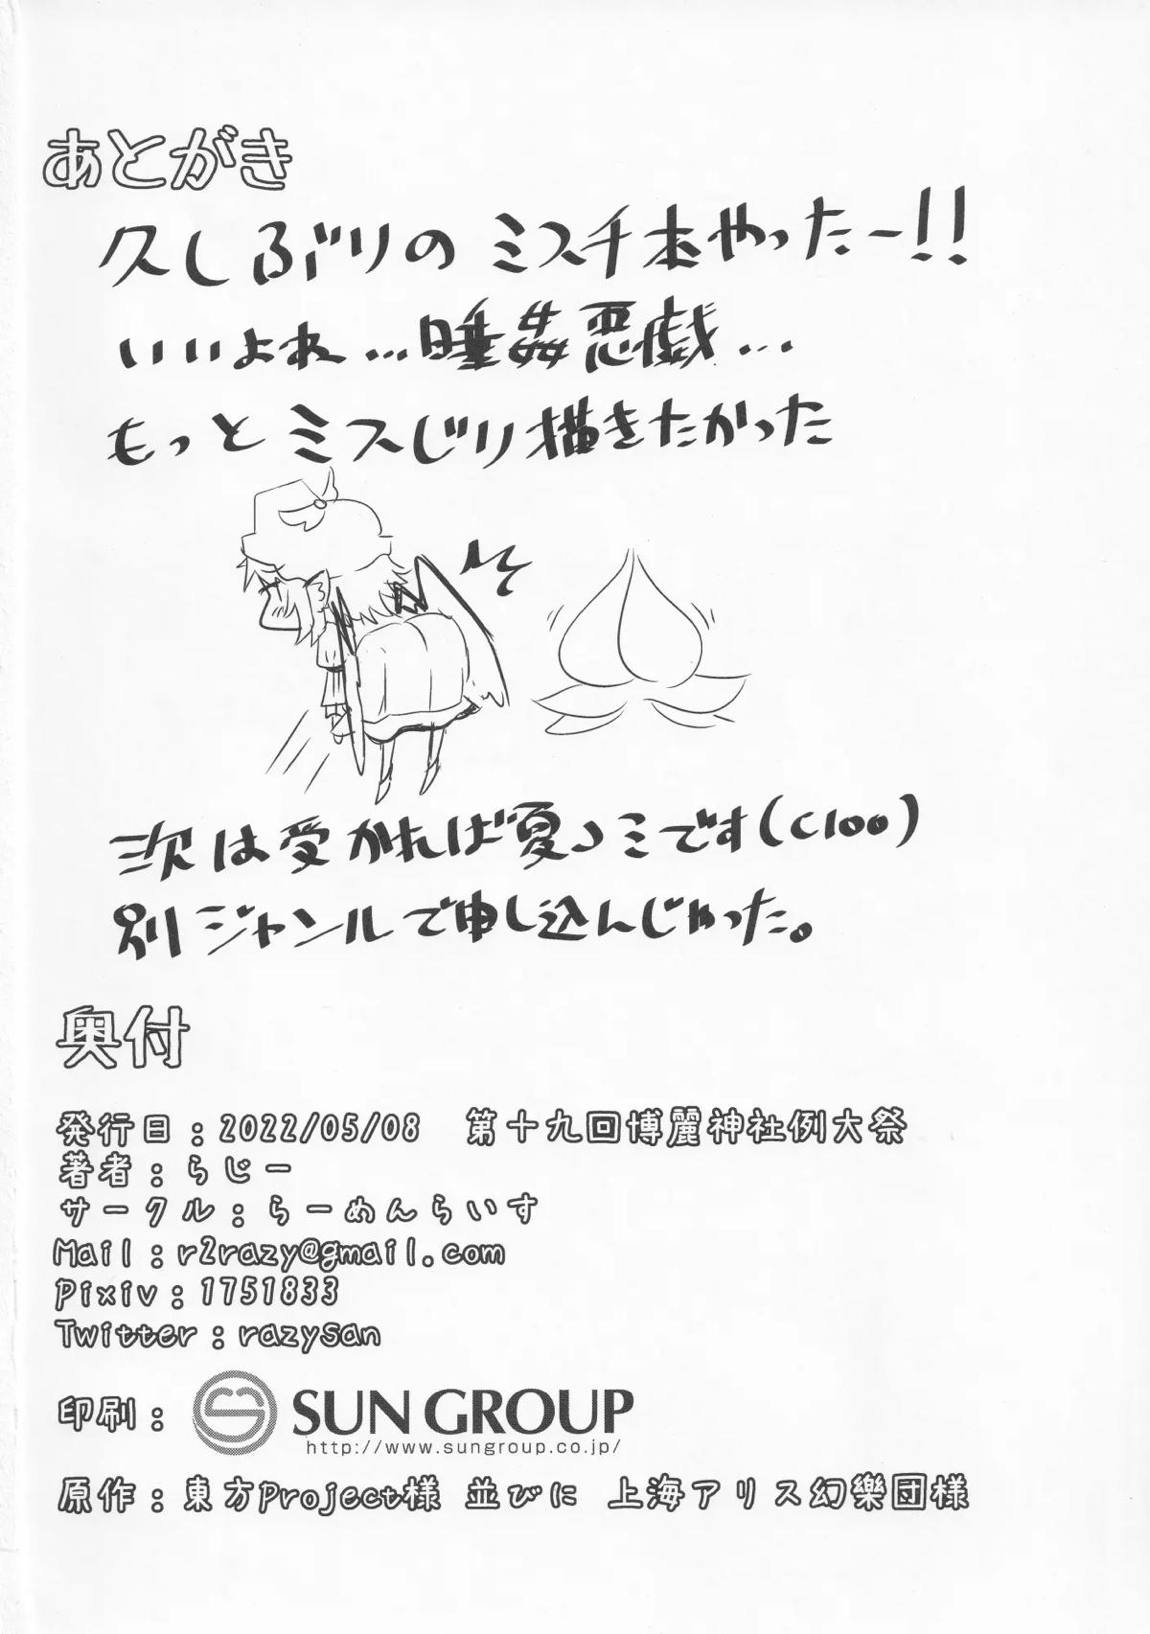 あとがき
久しぶりのミスチ本やったー!!
いいよね…睡姦悪戯…
もっとミスじり描きたかった
次は受かれば夏コミです(C100)
別ジャンルで申し込んじゃった。
奥付
発行日:2022/05/08　第十九回博麗神社例大祭
著者:らじー
サークル:らーめんらいす
Mail:r2razy@gmail.com
Pixiv:1751833
Twitter:razysan
印刷: SUN GROUP
http://www.sungroup.co.jp/
原作:東方Project様 並びに 上海アリス幻樂団様